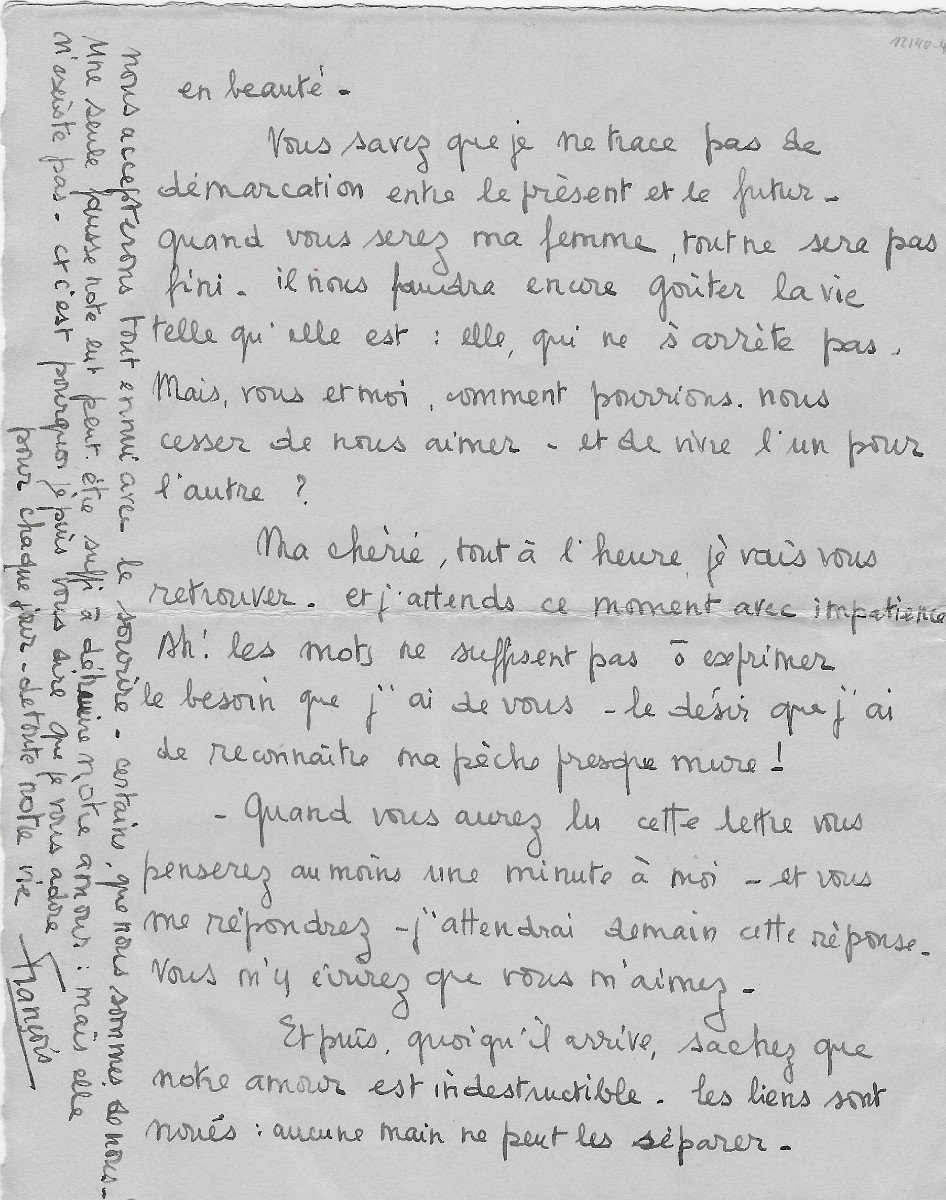 en beauté -
Vous savez que je ne trace pas de
démarcation entre le présent et le futur -
quand vous serez ma femme, tout ne sera pas
fini - il nous faudra encore goûter la vie
telle qu'elle est : elle, qui ne s'arrête pas.
Mais, vous et moi, comment pourrions-nous
cesser de nous aimer - et de vivre l'un pour
l'autre ?
Ma chérie, tout à l'heure je vais vous
retrouver - et j'attends ce moment avec impatience
Ah! les mots ne suffisent pas à exprimer
le besoin que j'ai de vous - le désir que j'ai
de reconnaître ma pêche presque mure !
- Quand vous aurez lu cette lettre vous
penserez au moins une minute à moi - et vous
me répondrez - j'attendrai demain cette réponse -
Vous m'y écrirez que vous m'aimez -
Et puis, quoiqu'il arrive, sachez que
notre amour est indestructible - les liens sont
noués : aucune main ne peut les séparer -
nous accepterons tout ennui avec le sourire - certains, que nous sommes de nous -
Une seule fausse note eut peut-être suffi à détruire notre amour : mais elle
n'existe pas - et c'est pourquoi je puis vous dire que je vous adore
pour chaque jour - de toute notre vie
François